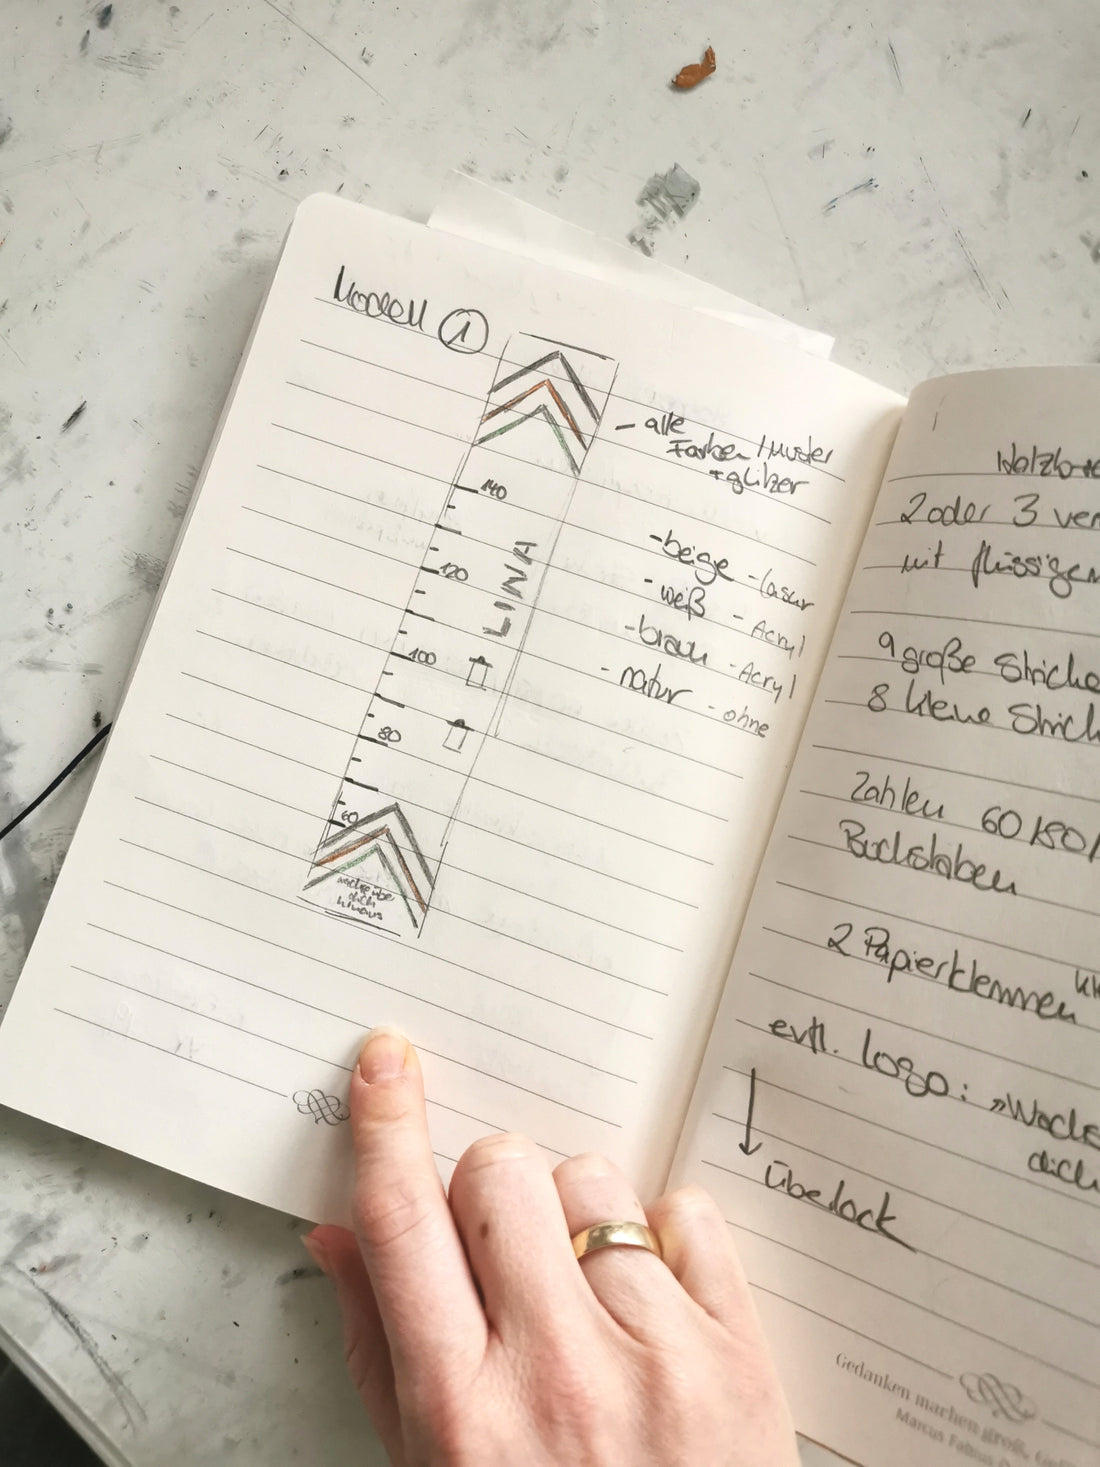 Modell 1
- alle
Farben / Muster
+ glitzer
140
120
LINA
100
80
60
- beige - lasur
- weiß - Acryl
- braun - Acryl
- natur - ohne
wachse über
dich
hinaus
2 oder 3 ver
mit flüssigem
9 große Striche
8 kleine Strich
Zahlen 60/80/
Buchstaben
2 Papierklemmen
evtl. Logo: "Wachs
dich
Überlack
Gedanken machen groß,
Marcus Fabius